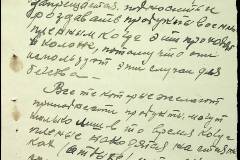 запрещается, подносить и
раздавать продукты военно
пленным когда эти проходят
в колоне, потому что они
используют эти случаи для
бегства.
Все те которые желают
приносить продукты, могут
только лиш в то время когда
пленные находятся на
как